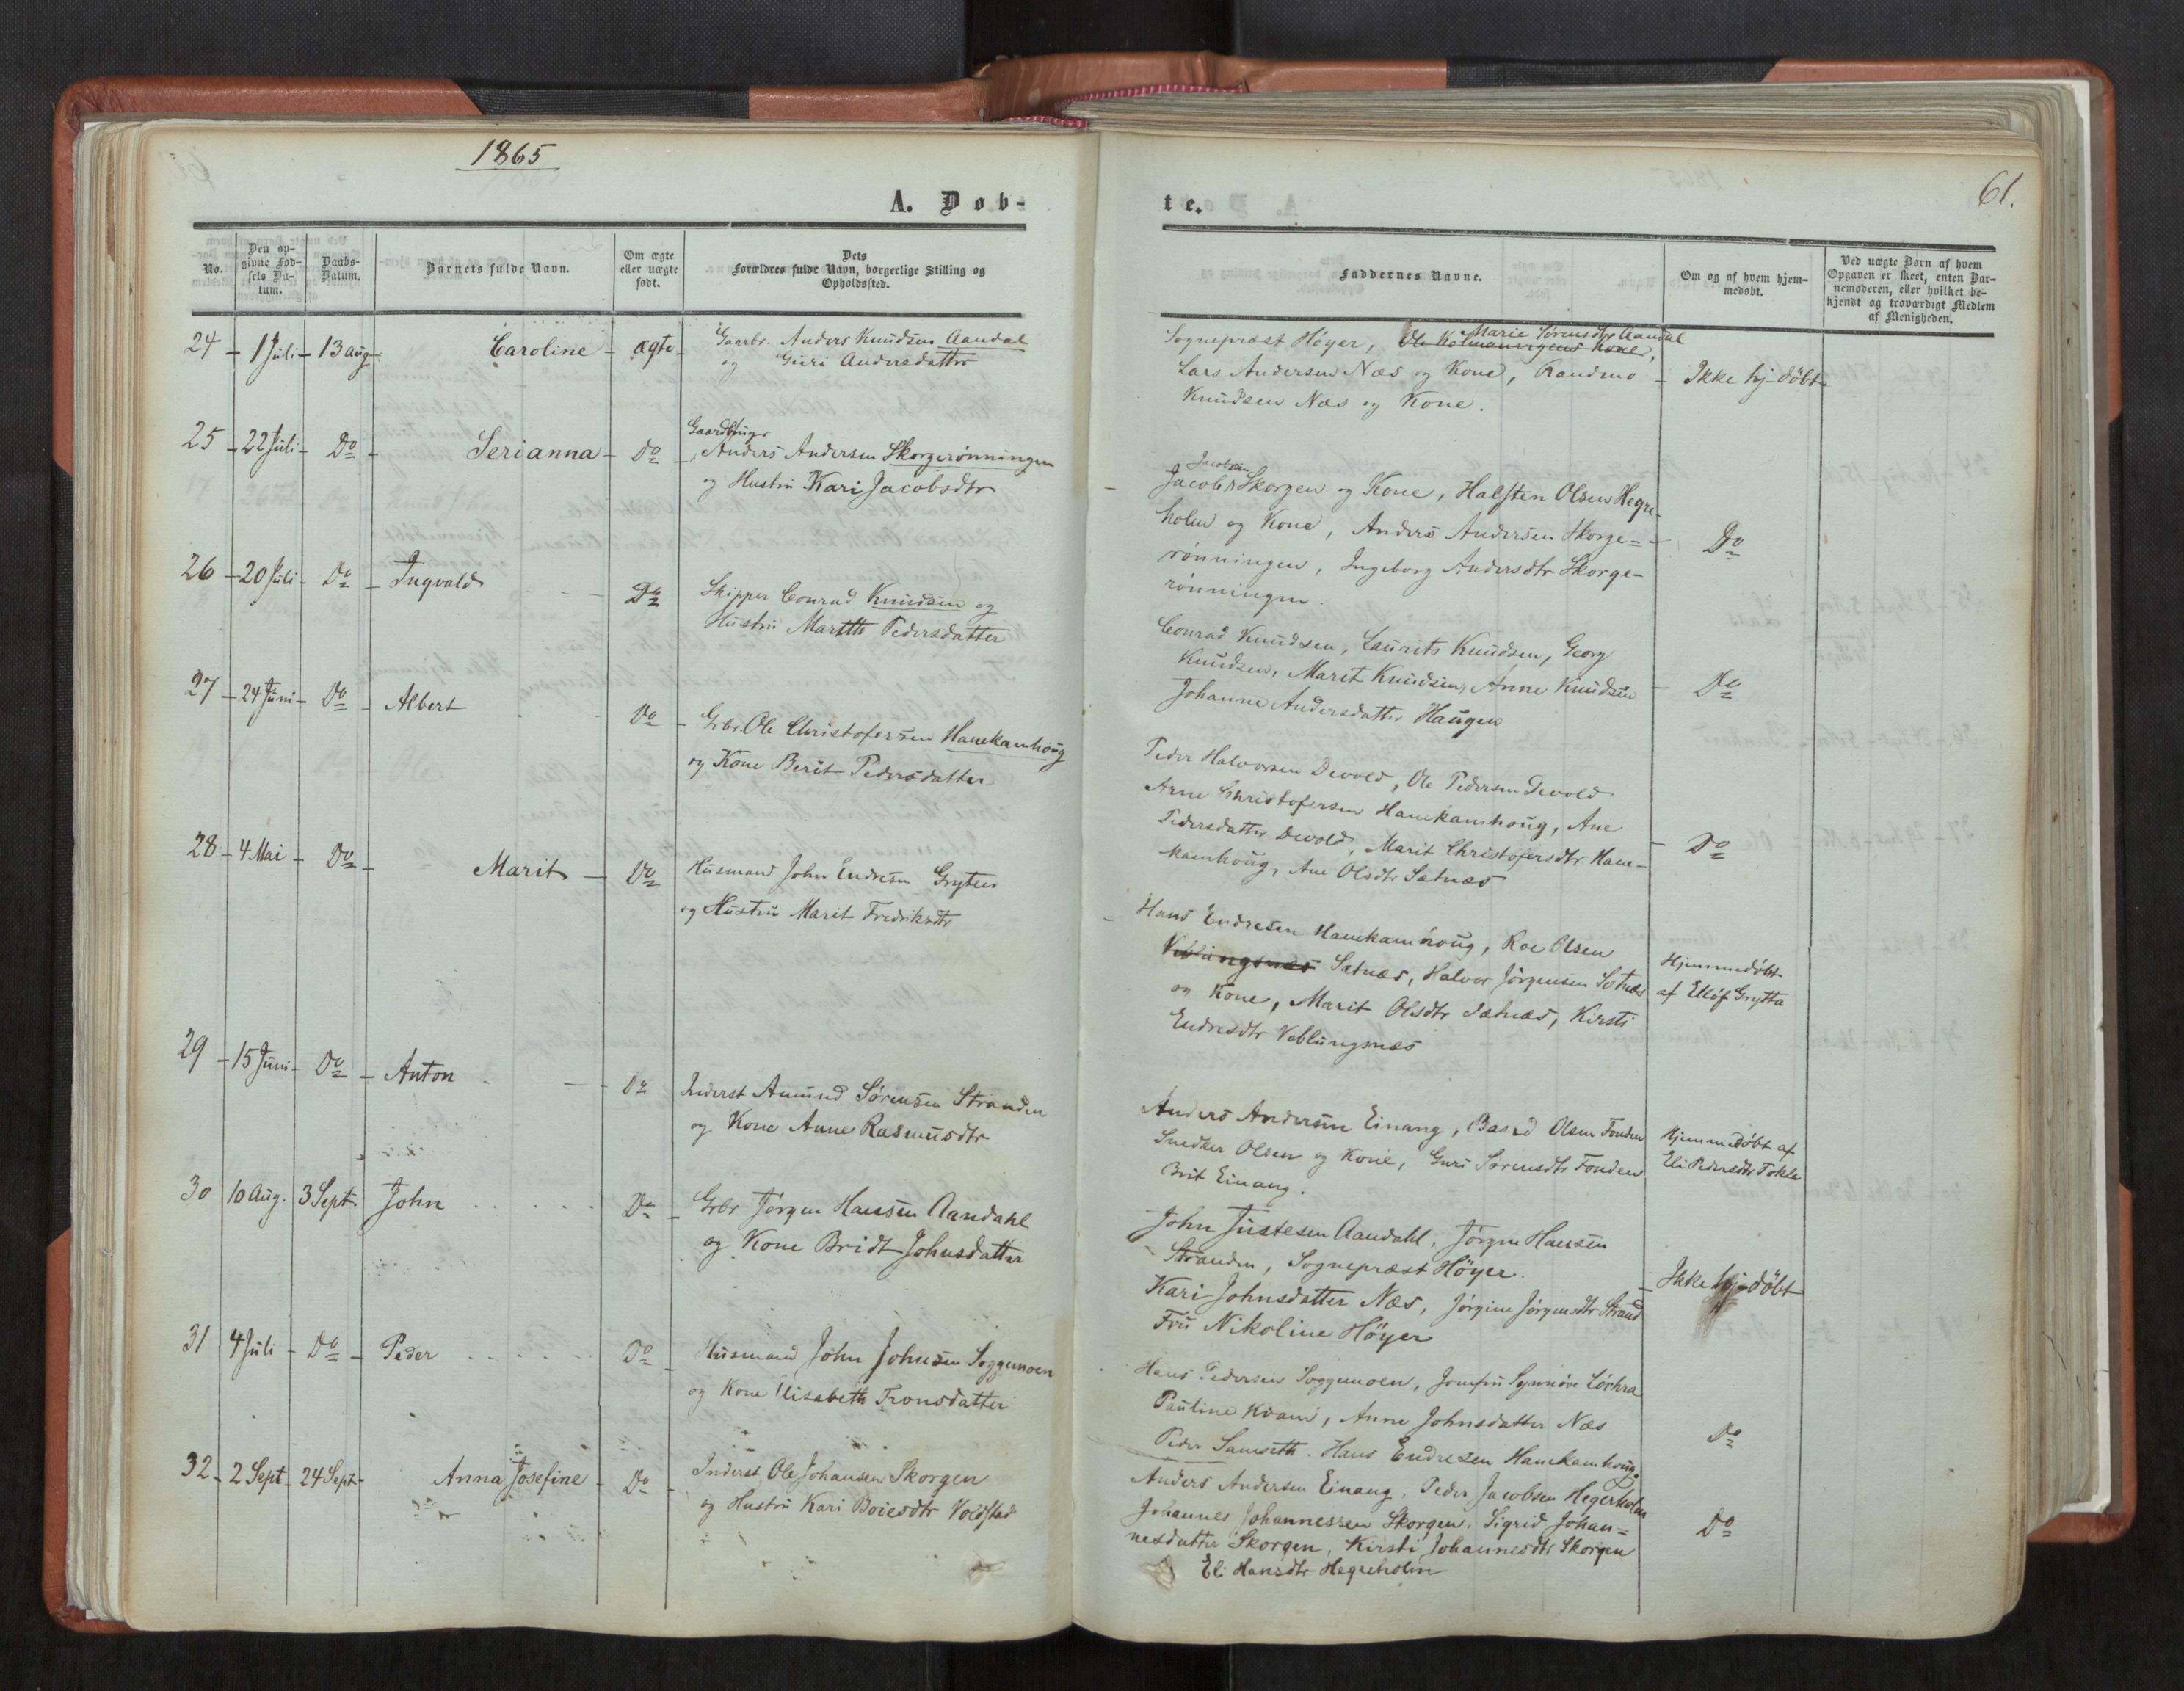 1865
A. Døb-
No.
Den op-
givne Fød-
sels Da-
tum.
Daabs-
Datum.
Barnets fulde Navn.
Om ægte
eller uægte
født.
Dets
Forældres fulde Navn, borgerlige Stilling og
Opholdssted.
24 - 1 Juli - 13 Aug - Caroline - ægte - Gaarbr. Anders Knudsen Aandal
og Guri Andersdatter
25 - 22 Juli - Do - Serianna - Do - Gaardbruger
Anders Andersen Skorgerønningen
og Hustru Kari Jacobsdtr
26 - 20 Juli - Do - Ingvald - Do Skipper Conrad Knudsen og
Hustru Marith Pedersdatter
27 - 24 Juni - Do - Albert Do - Gbr. Ole Christofersen Hanekamhoug
og Kone Berit Pedersdatter
28 - 4 Mai - Do - Marit - Do Husmand John Endresen Gryten
og Hustru Marit Fredriksdtr
29 - 15 Juni - Do - Anton - Do Inderst Amund Sørensen Stranden
og Kone Anne Rasmusdtr
30 10 Aug. 3 Sept. John Do - Gbr Jørgen Hansen Aandahl
og Kone Bridt Johnsdatter
31 4 Juli - Do - Peder Do - Husmand John Johnsen Soggemoen
og Kone Elisabeth Tronsdatter
32 - 2 Sept - 24 Sept - Anna Josefine - Do - Inderst Ole Johansen Skorgen
og Hustru Kari Boiesdtr Voldstad
61.
te.
Faddernes Navne.
Om og af hvem hjem-
medøbt.
Ved uægte Børn af hvem
Opgaven er skeet, enten Bar-
nemoderen, eller hvilket be-
kjendt og troværdigt Medlem
af Menigheden.
Marie Sørensdtr Aandal
Sognepræst Høyer, Ole Kone,
Lars Andersen Næs og Kone, Randmo - Ikke hj-døbt
Knudsen Næs og Kone.
Jacobsen
Jacob Skorgen og Kone, Halsten Olsen Hegre-
holm og Kone, Anders Andersen Skorge= - Do
rønningen, Ingeborg Andersdtr Skorge-
rønningen.
Conrad Knudsen, Laurits Knudsen, Georg
Knudsen, Marit Knudsen, Anne Knudsen - Do
Johanne Andersdatter Haugen
Peder Halvorsen Devold, Ole Pedersen Devold
Arne Christofersen Hanekamhoug, Ane
Pedersdatter Devold, Marit Christofersdtr Hane- - Do
kamhoug, Ane Olsdtr Sætnæs
Hans Endresen Hanekamhoug, Roe Olsen
Veblungsnæs Sætnæs, Halvor Jørgensen Sætnæs
og Kone, Marit Olsdtr Sætnæs, Kirsti
Endresdtr Veblungsnæs
Hjemmedøbt
af Ellef Grytta
Anders Andersen Einang, Baard Olsen Fonden
Snedker Olsen og Kone, Guri Sørensdtr Fonden
Brit Einang.
Hjemmedøbt af
Eli Pedersdtr Tokle
John Justesen Aandahl, Jørgen Hansen
Stranden, Sognepræst Höyer. - Ikke hj-döbt
Kari Johnsdatter Næs, Jörgine Jörgensdtr Strand
Fru Nikoline Höyer
Hans Pedersen Soggemoen, Jomfru Synnöve
Pauline Kvam, Anne Johnsdatter Næs Do
Peder Samseth. Hans Endresen Hanekamhoug.
Anders Andersen Einang, Peder Jacobsen Hegerholm
Johannes Johannessen Skorgen, Sigrid Johan= Do
nesdatter Skorgen, Kirsti Johannesdtr Skorgen
Eli Hansdtr Hegreholm